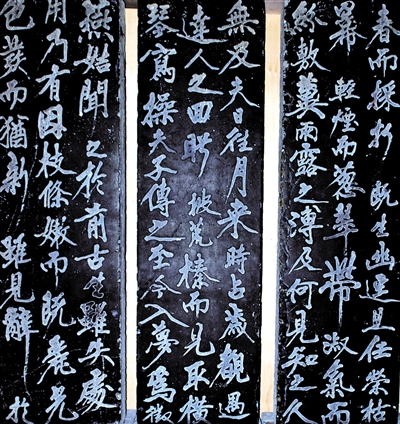 春而採折既生幽逕且任榮枯
冪輕煙而葱翠帶淑氣而
紛敷冀雨露之溥及何見知之久
無及夫日往月来時占歲觀遇
達人之回眄披荒榛而見取橫
琴寫操夫子傳之至今入夢為徵
燕姞聞之於前古生雖失處
用乃有因枝條嫩而既麗光
色發而猶新雖見辭於